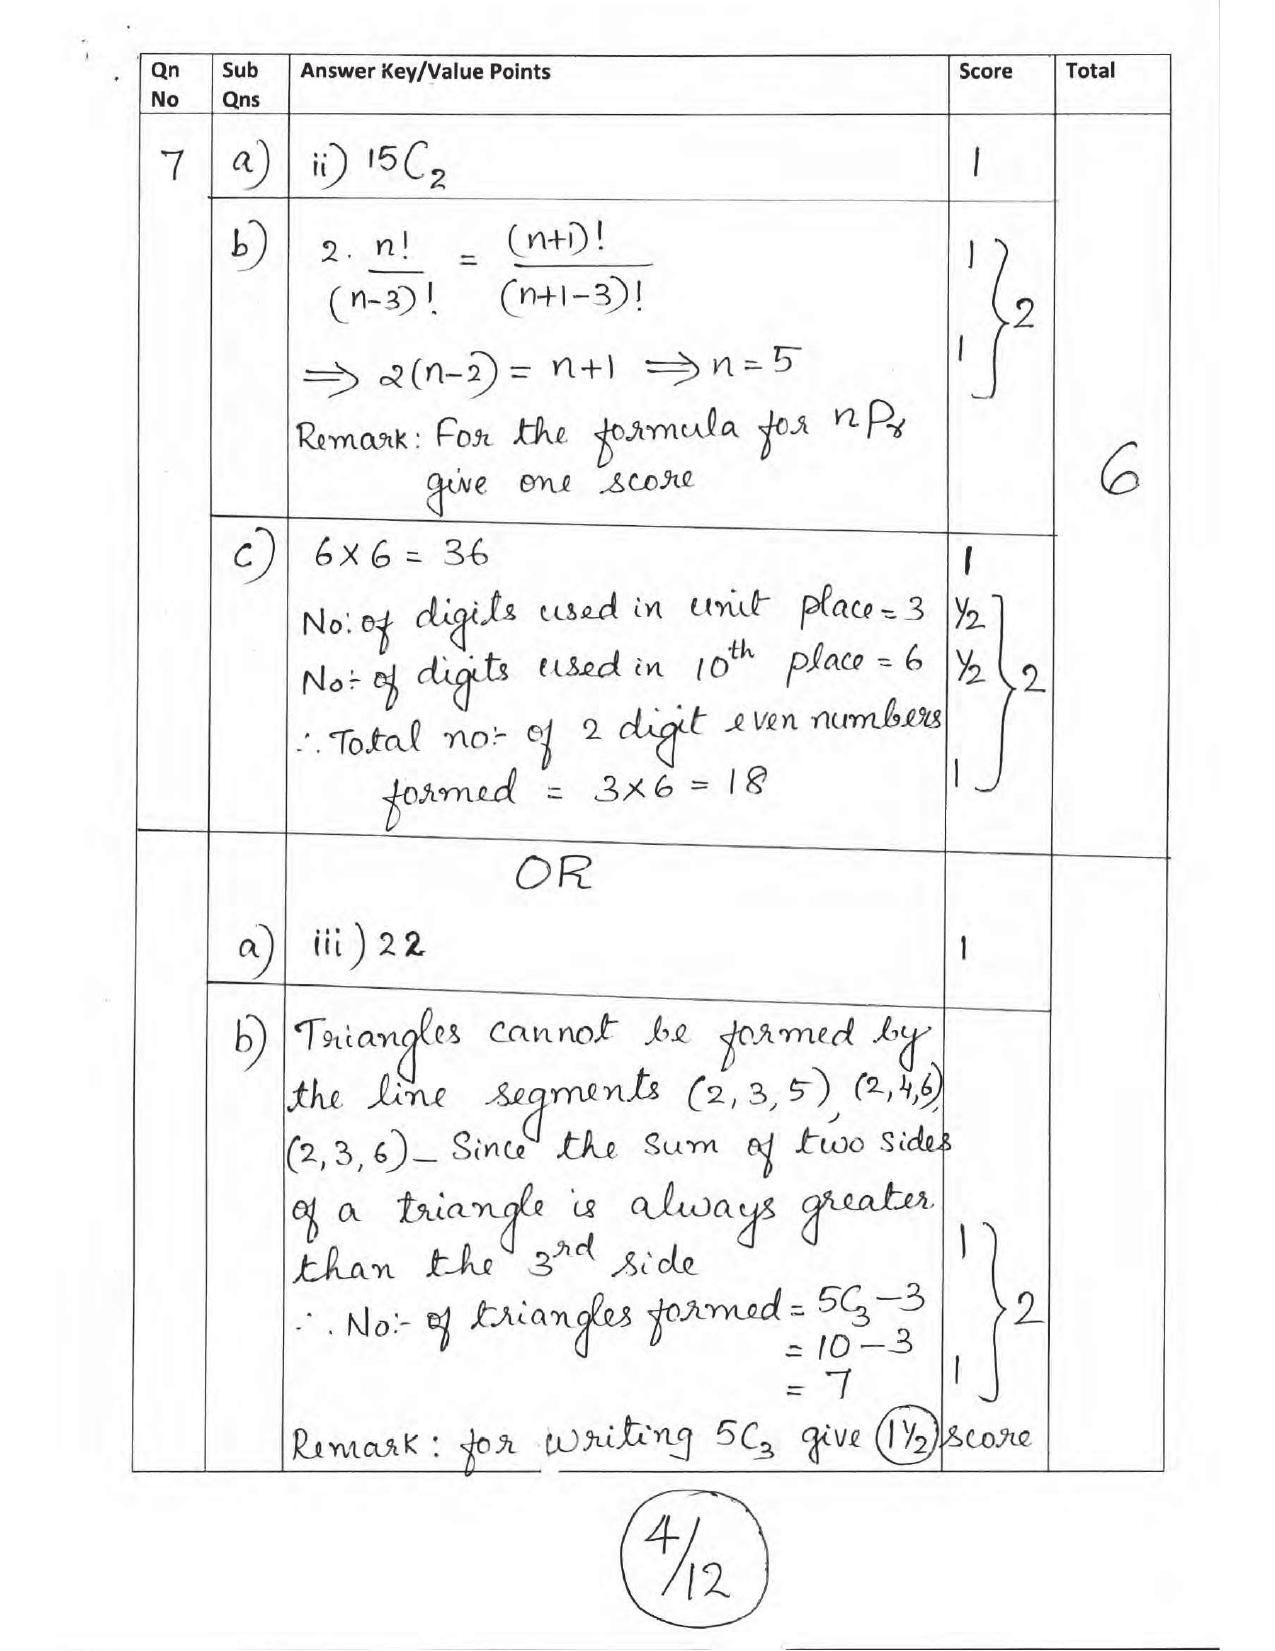 Qn No | Sub Qns | Answer Key/Value Points | Score | Total
7 | a) | ii) 15C₂ | 1 | 6
b) | 2. n!/(n-3)! = (n+1)!/(n+1-3)! | 1
⟹ 2(n-2) = n+1 ⟹ n = 5 | 1 } 2
Remark: For the formula for nPr
give one score
c) | 6 x 6 = 36 | 1
No: of digits used in unit place = 3 | ½
No:- of digits used in 10th place = 6 | ½
∴ Total no:- of 2 digit even numbers
formed = 3x6 = 18 | 1 } 2
OR
a) | iii) 22 | 1
b) | Triangles cannot be formed by
the line segments (2, 3, 5), (2,4,6),
(2, 3, 6) – Since the sum of two sides
of a triangle is always greater
than the 3rd side | 1
∴ No:- of triangles formed = 5C₃ – 3 | } 2
= 10 – 3
= 7 | 1
Remark: for writing 5C₃ give 1½ score
4/12